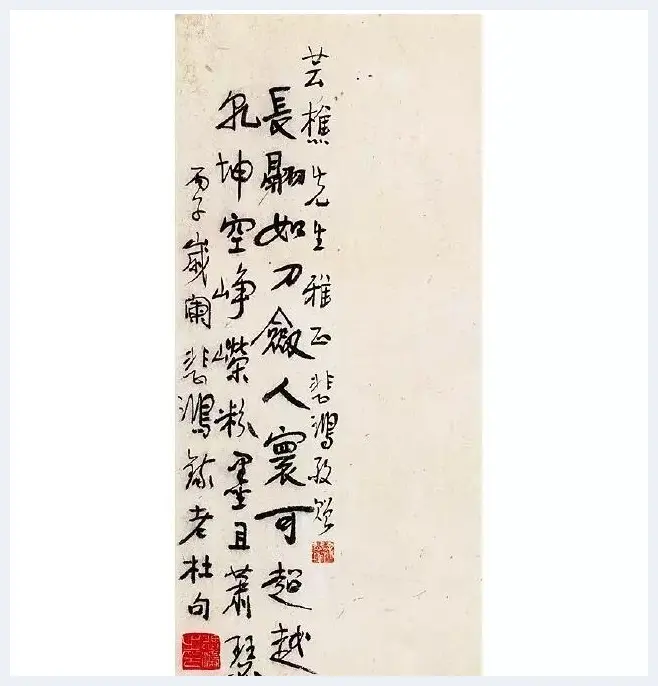 芸樵先生雅正悲鴻敬贈
長翮如刀劍人寰可超越
乾坤空崢嶸粉墨且蕭瑟
丙子歲闌悲鴻錄老杜句